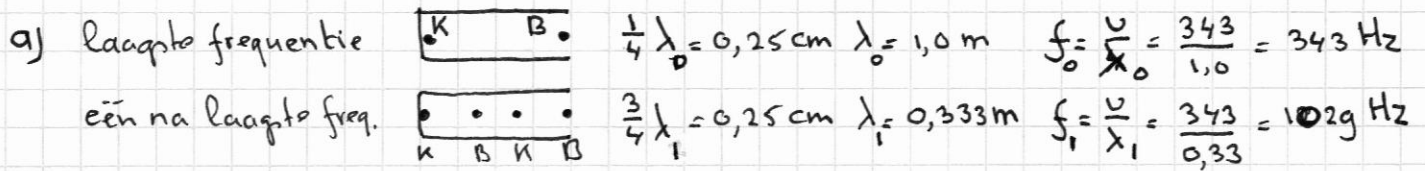 a) laagste frequentie K B. 1/4 λ₀ = 0,25 cm λ₀ = 1,0 m f₀ = v/λ₀ = 343/1,0 = 343 Hz
één na laagste freq. K B K B 3/4 λ₁ = 0,25 cm λ₁ = 0,333 m f₁ = v/λ₁ = 343/0,33 = 1029 Hz